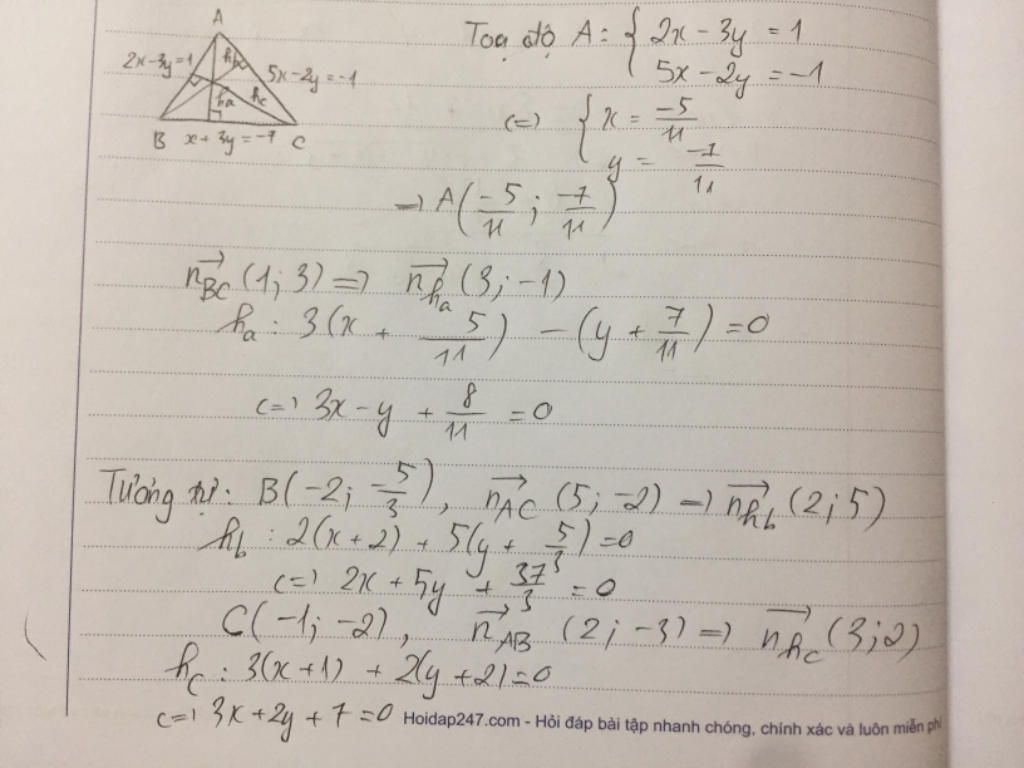 A
2x-3y=1
hb
5x-2y=-1
ha
hc
B
x+3y=-7
C
Toạ độ A: { 2x-3y = 1
5x-2y = -1
<=> { x = -5/11
y = -7/11
=> A(-5/11; -7/11)
n_BC→ (1; 3) => n_ha→ (3; -1)
ha: 3(x + 5/11) - (y + 7/11) = 0
<=> 3x - y + 8/11 = 0
Tương tự: B(-2; -5/3), n_AC→ (5; -2) => n_hb→ (2; 5)
hb: 2(x+2) + 5(y + 5/3) = 0
<=> 2x + 5y + 37/3 = 0
C(-1; -2), n_AB→ (2; -3) => n_hc→ (3; 2)
hc: 3(x+1) + 2(y+2) = 0
<=> 3x + 2y + 7 = 0
Hoidap247.com - Hỏi đáp bài tập nhanh chóng, chính xác và luôn miễn phí